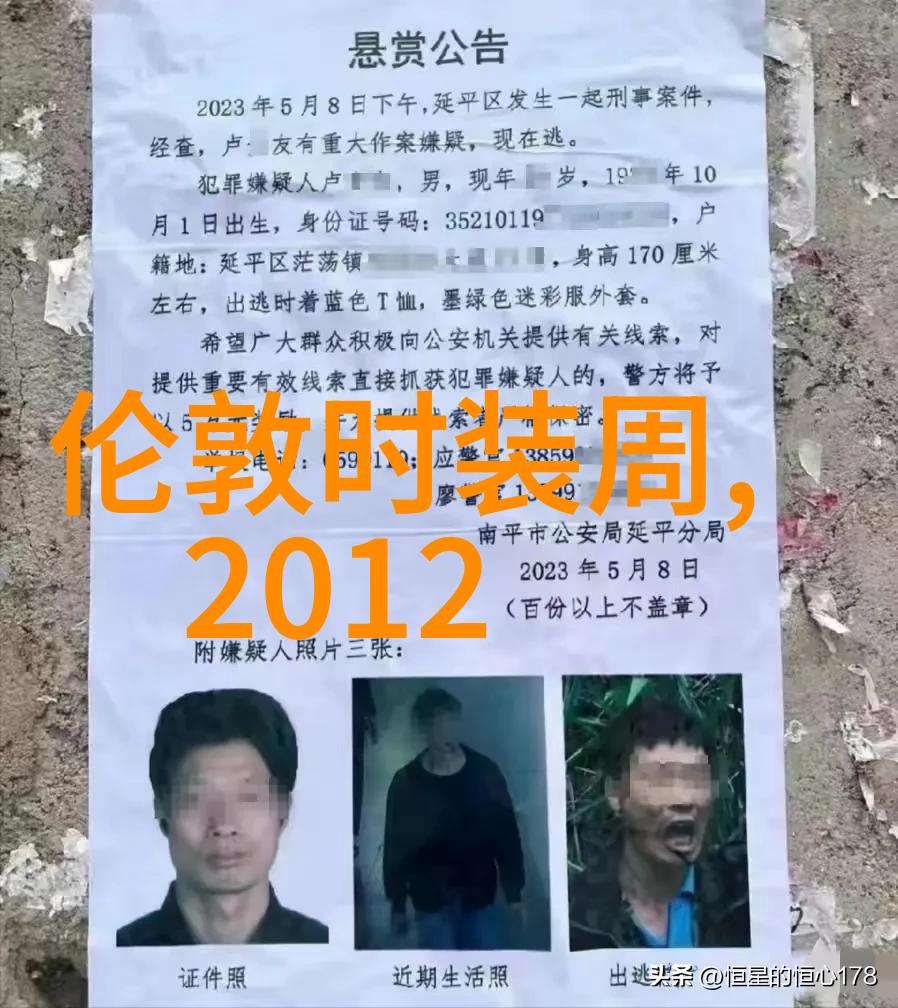 悬赏公告
2023年5月8日下午,延平区发生一起刑事案件,
经查,卢 友有重大作案嫌疑,现在逃。
犯罪嫌疑人卢 ,男,现年 岁,19 年10
月1日出生,身份证号码:35210119 ,户
籍地:延平区茫荡镇 ,身高170厘米
左右,出逃时着蓝色T恤,墨绿色迷彩服外套。
希望广大群众积极向公安机关提供有关线索,对
提供重要有效线索直接抓获犯罪嫌疑人的,警方将予
以5
伦敦时装周,
2012
应警官13859
廖警官
南平市公安局延平分局
2023年5月8日
(百份以上不盖章)
附嫌疑人照片三张:
证件照 近期生活照 出逃
头条 @恒星的恒心178